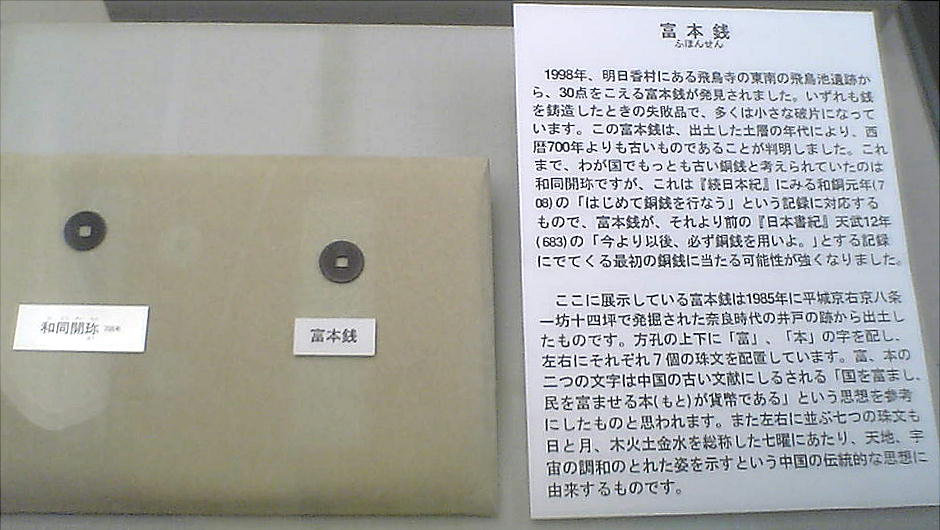 富本銭
ふほんせん
1998年、明日香村にある飛鳥寺の東南の飛鳥池遺跡か
ら、30点をこえる富本銭が発見されました。いずれも銭
を鋳造したときの失敗品で、多くは小さな破片になって
います。この富本銭は、出土した土層の年代により、西
暦700年よりも古いものであることが判明しました。これ
まで、わが国でもっとも古い銅銭と考えられていたのは
和同開珎ですが、これは『続日本紀』にみる和銅元年(7
08)の「はじめて銅銭を行なう」という記録に対応する
もので、富本銭が、それより前の『日本書紀』天武12年
(683)の「今より以後、必ず銅銭を用いよ。」とする記録
にでてくる最初の銅銭に当たる可能性が強くなりました。
ここに展示している富本銭は1985年に平城京右京八条
一坊十四坪で発掘された奈良時代の井戸の跡から出土し
たものです。方孔の上下に「富」、「本」の字を配し、
左右にそれぞれ7個の珠文を配置しています。富、本の
二つの文字は中国の古い文献にしるされる「国を富まし、
民を富ませる本(もと)が貨幣である」という思想を参考
にしたものと思われます。また左右に並ぶ七つの珠文も
日と月、木火土金水を総称した七曜にあたり、天地、宇
宙の調和のとれた姿を示すという中国の伝統的な思想に
由来するものです。
和同開珎
富本銭